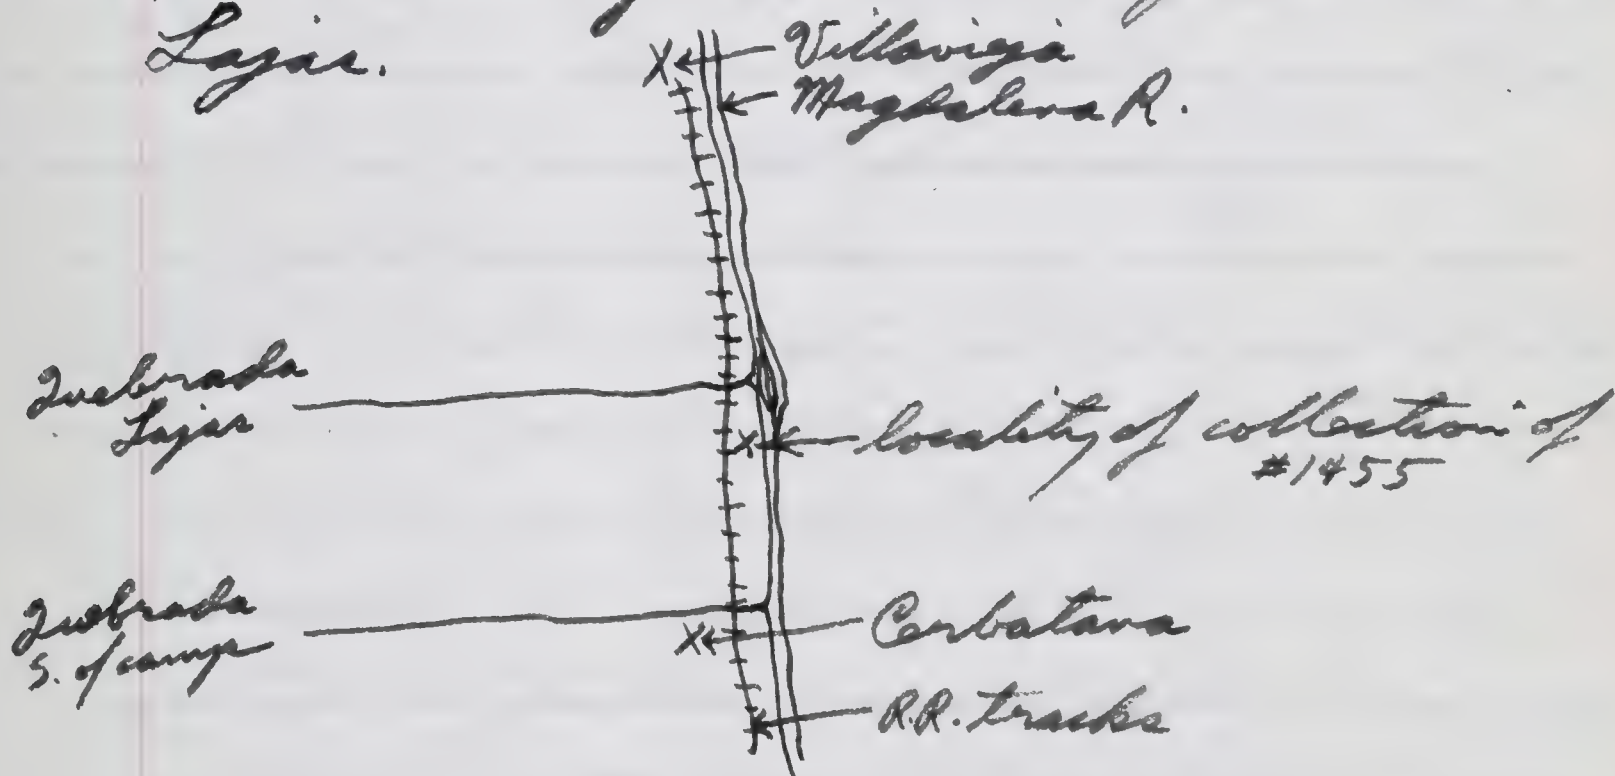 Lajas.
X Villavieja
Magdalena R.
Quebrada
Lajas
X locality of collection of
#1455
Quebrada
S. of camp
X Cerbatana
R.R. tracks